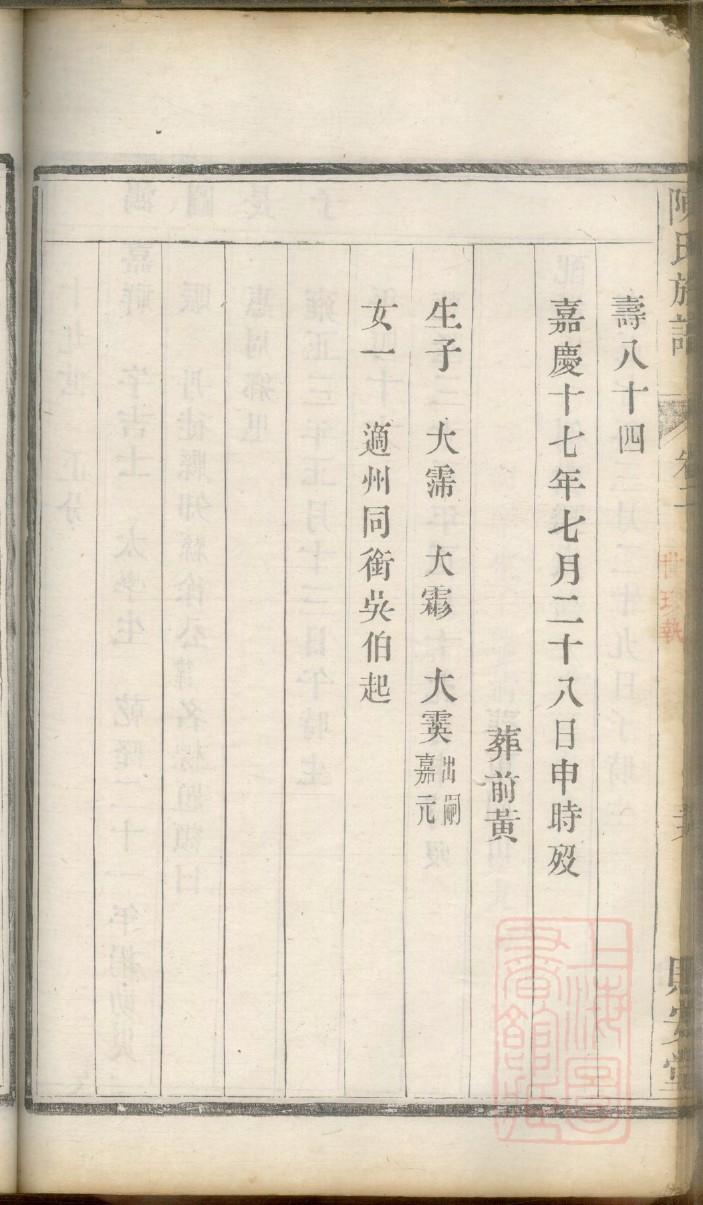 陳氏族譜
卷二
世珍執
壽八十四
嘉慶十七年七月二十八日申時歿
葬前黃
生子 大霈 大霦 大霙 出嗣嘉元
女一 適州同銜吳伯起
上海圖書館藏